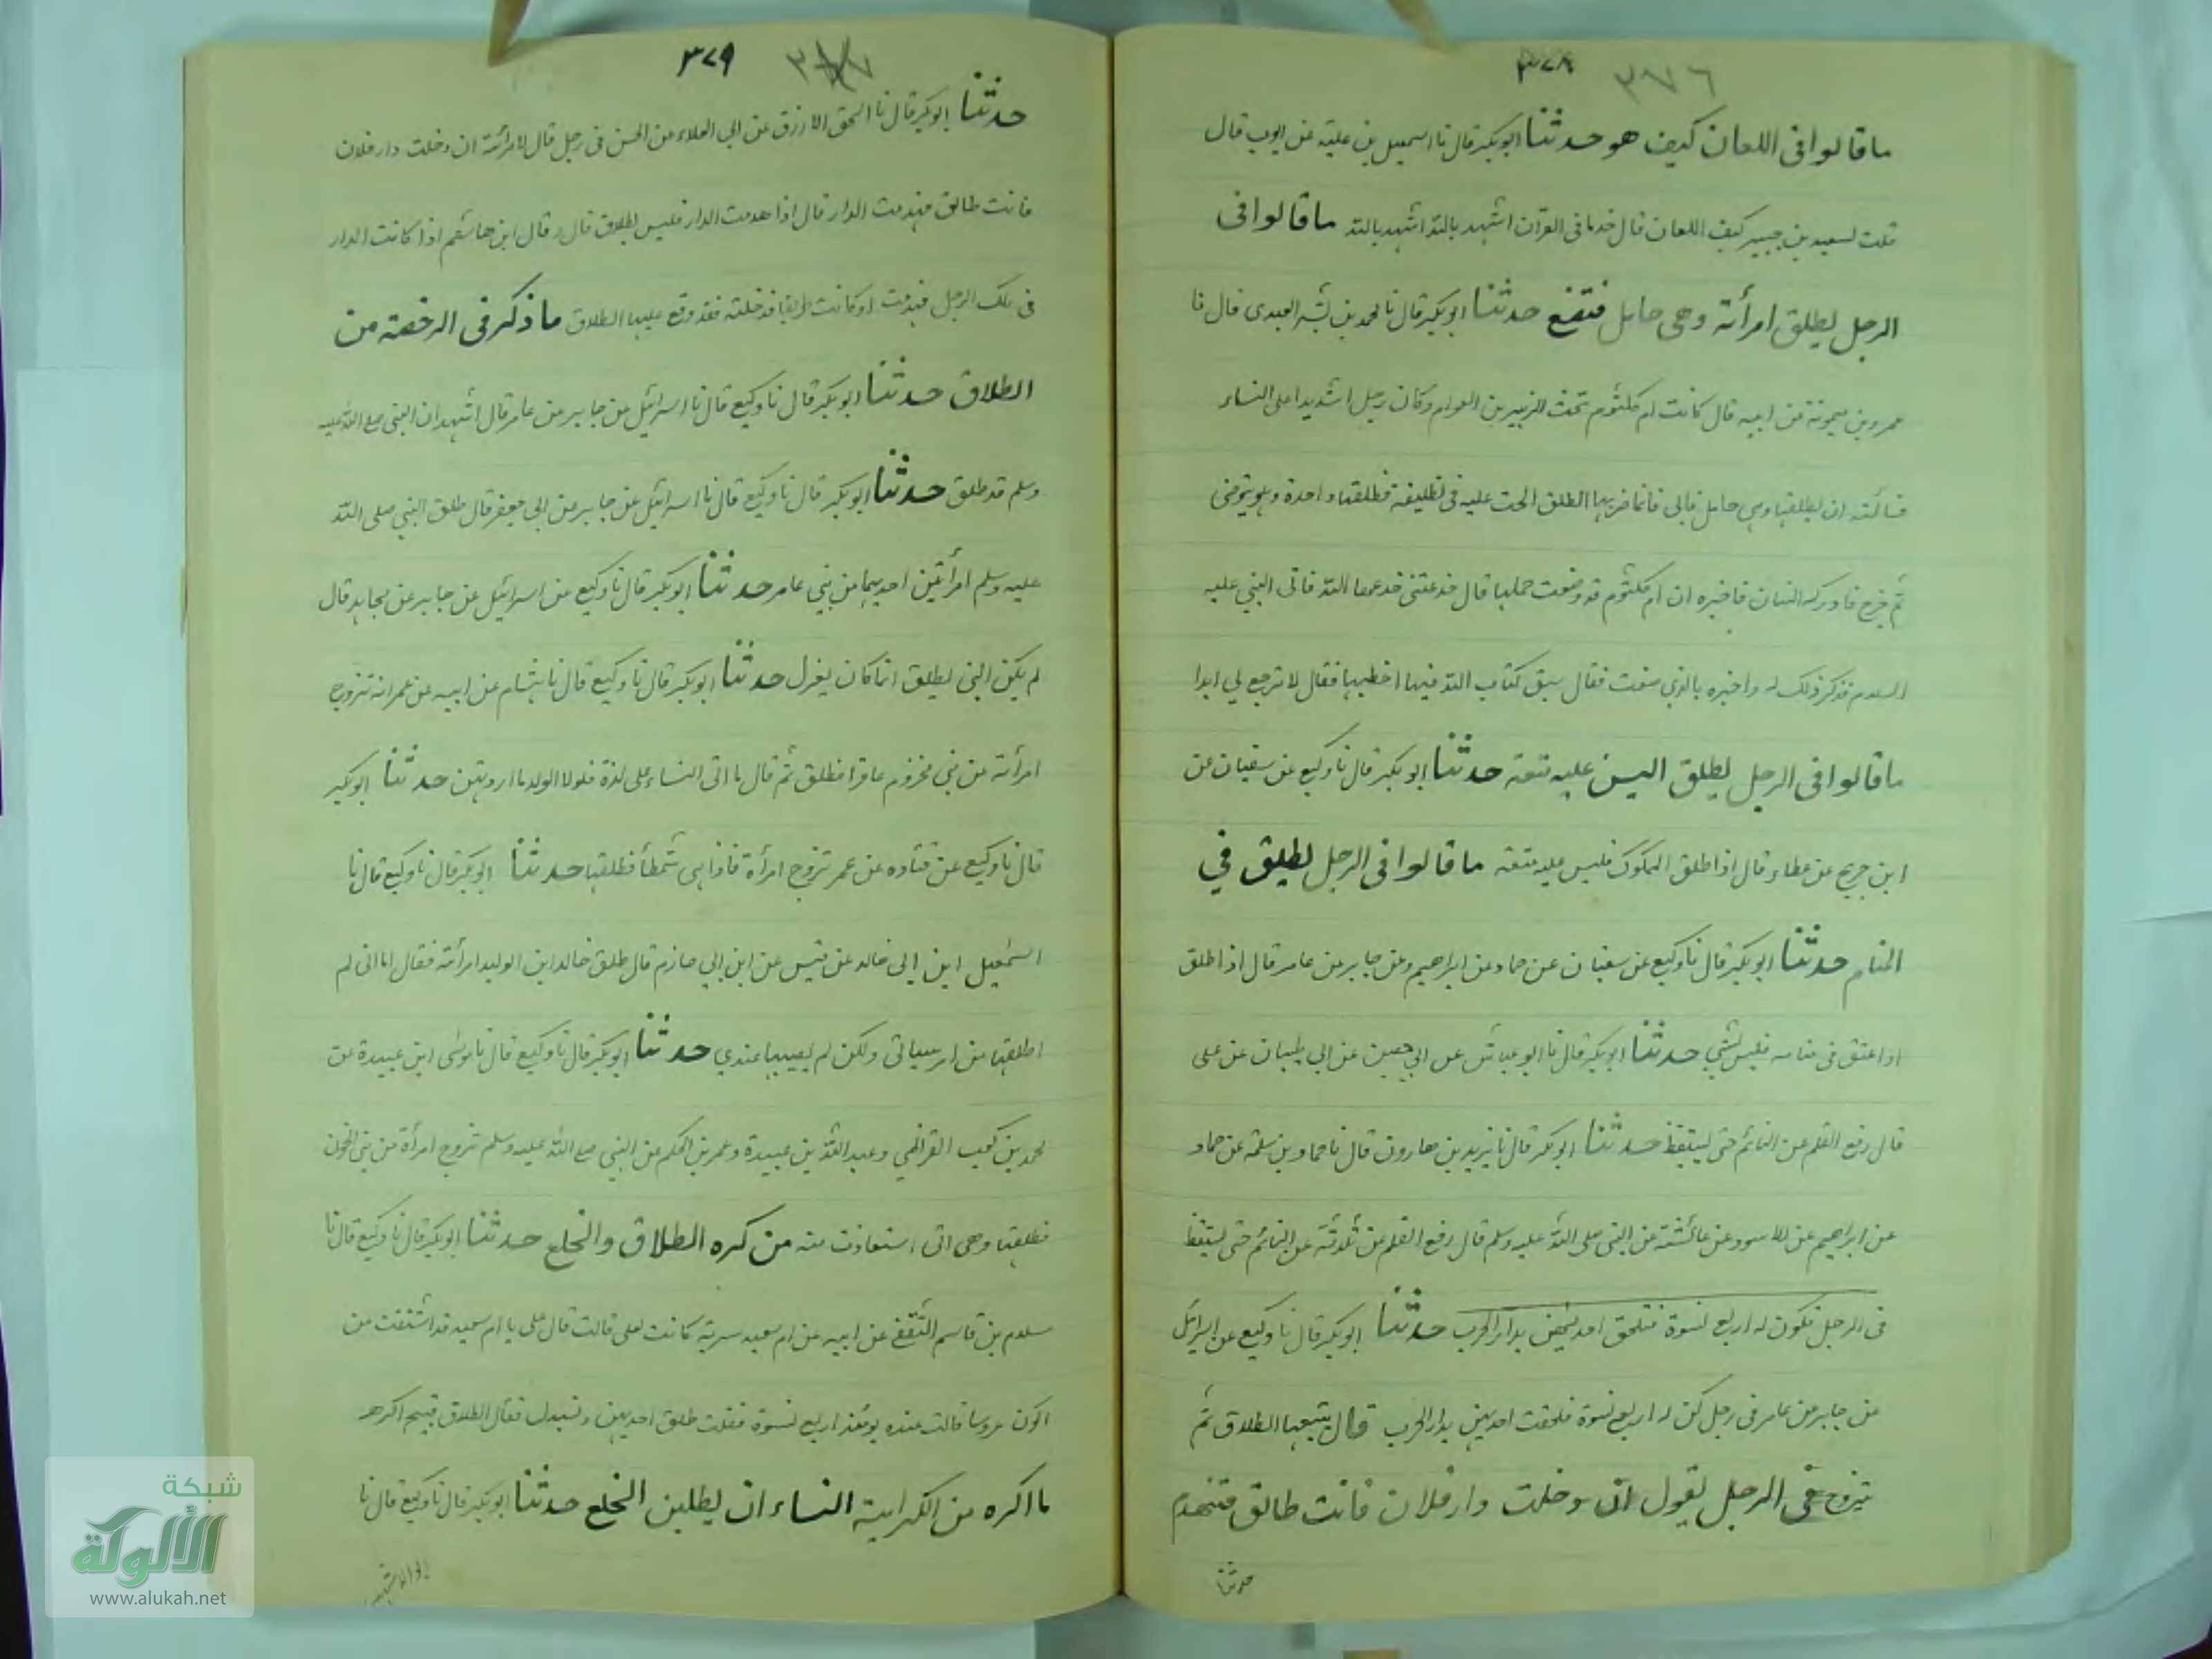 ٣٧٨ ٣٧٦
ما قالوا فى اللعان كيف هو حدثنا ابوبكر قال نا اسمعيل بن علية عن ايوب قال
قلت لسعيد بن جبير كيف اللعان قال خذ ما فى القرآن اشهد بالله اشهد بالله ما قالوا فى
الرجل يطلق امرأته وهى حامل فتضع حدثنا ابوبكر قال نا محمد بن بشر العبدى قال نا
عمرو بن ميمونة عن ابيه قال كانت ام كلثوم تحت الزبير بن العوام وكان رجل اشديدا على النساء
فسألته ان يطلقها وهى حامل فابى فلما ضربها الطلق الحت عليه فى تطليقة فطلقها واحدة وهو يتوضى
ثم خرج فادركه انسان فاخبره ان ام كلثوم قد وضعت حملها قال خدعتنى خدعها الله فاتى النبي عليه
السلام فذكر ذلك له واخبره بالذي صنعت فقال سبق كتاب الله فيها اخطبها فقال لا ترجع لي ابدا
ما قالوا فى الرجل يطلق اليس عليه متعة حدثنا ابوبكر قال نا وكيع عن سفيان عن
ابن جريج عن عطاء قال اذا طلق المملوك فليس عليه متعة ما قالوا فى الرجل يطلق في
المنام حدثنا ابوبكر قال نا وكيع عن سفيان عن حماد عن ابراهيم وعن جابر عن عامر قال اذا طلق
او اعتق فى منامه فليس بشي حدثنا ابوبكر قال نا ابو عياش عن ابي حصين عن ابى ظبيان عن على
قال رفع القلم عن النائم حتى يستيقظ حدثنا ابوبكر قال نا يزيد بن هارون قال نا حماد بن سلمة عن حماد
عن ابراهيم عن الاسود عن عائشة عن النبى صلى الله عليه وسلم قال رفع القلم عن ثلاثة عن النائم حتى يستيقظ
فى الرجل تكون له اربع نسوة فتلحق احديهن بدار الحرب حدثنا ابوبكر قال نا وكيع عن اسرائيل
عن جابر عن عامر فى رجل كن له اربع نسوة فلحقت احديهن بدار الحرب قال يتبعها الطلاق ثم
يتزوج فى الرجل يقول ان دخلت دار فلان فانت طالق فتنهدم
حدثنا
٣٧٩
حدثنا ابوبكر قال نا اسحق الازرق عن ابي العلاء عن الحسن فى رجل قال لامرأته ان دخلت دار فلان
فانت طالق فهدمت الدار قال اذا هدمت الدار فليس بطلاق قال وقال ابن هاشم اذا كانت الدار
فى ملك الرجل فهدمت او كانت طريقا فدخلته فقد وقع عليها الطلاق ما ذكر فى الرخصة من
الطلاق حدثنا ابوبكر قال نا وكيع قال نا اسرائيل عن جابر عن عامر قال اشهد ان النبى صلى الله عليه
وسلم قد طلق حدثنا ابوبكر قال نا وكيع قال نا اسرائيل عن جابر عن ابى جعفر قال طلق النبي صلى الله
عليه وسلم امرأتين احديهما من بني عامر حدثنا ابوبكر قال نا وكيع عن اسرائيل عن جابر عن مجاهد قال
لم يكن النبى يطلق انما كان يعزل حدثنا ابوبكر قال نا وكيع قال نا هشام عن ابيه عن عمر انه تزوج
امرأته من بني مخزوم عاقرا فطلق ثم قال ما اتى النساء على لذة فلولا الولد ما اردتهن حدثنا ابوبكر
قال نا وكيع عن قتاده عن عمر تزوج امرأة فاذا هى شمطأ فطلقها حدثنا ابوبكر قال نا وكيع قال نا
اسمعيل ابن ابى خالد عن قيس عن ابن ابي حازم قال طلق خالد ابن الوليد امرأته فقال اما انى لم
اطلقها من امر ساتى ولكن لم يصيبها عندي حدثنا ابوبكر قال نا وكيع قال نا موسى ابن عبيدة عن
محمد بن كعب القرظي وعبد الله بن عبيدة وعمر بن الحكم عن النبي صلى الله عليه وسلم تزوج امرأة من بنى الجون
فطلقها وهى التى استعاذت منه من كره الطلاق والخلع حدثنا ابوبكر قال نا وكيع قال نا
سلام بن قاسم الثقفى عن ابيه عن ام سعيد سرية كانت لعلى قالت قال على يا ام سعيد قد اشتقت من
اكون عروسا قالت عنده يومئذ اربع نسوة فقلت طلق احديهن وتسبدل فقال الطلاق قبيح اكرهه
ما اكره من الكراهية النساء ان يطلبن الخلع حدثنا ابوبكر قال نا وكيع قال نا
شبكة
الألوكة
www.alukah.net